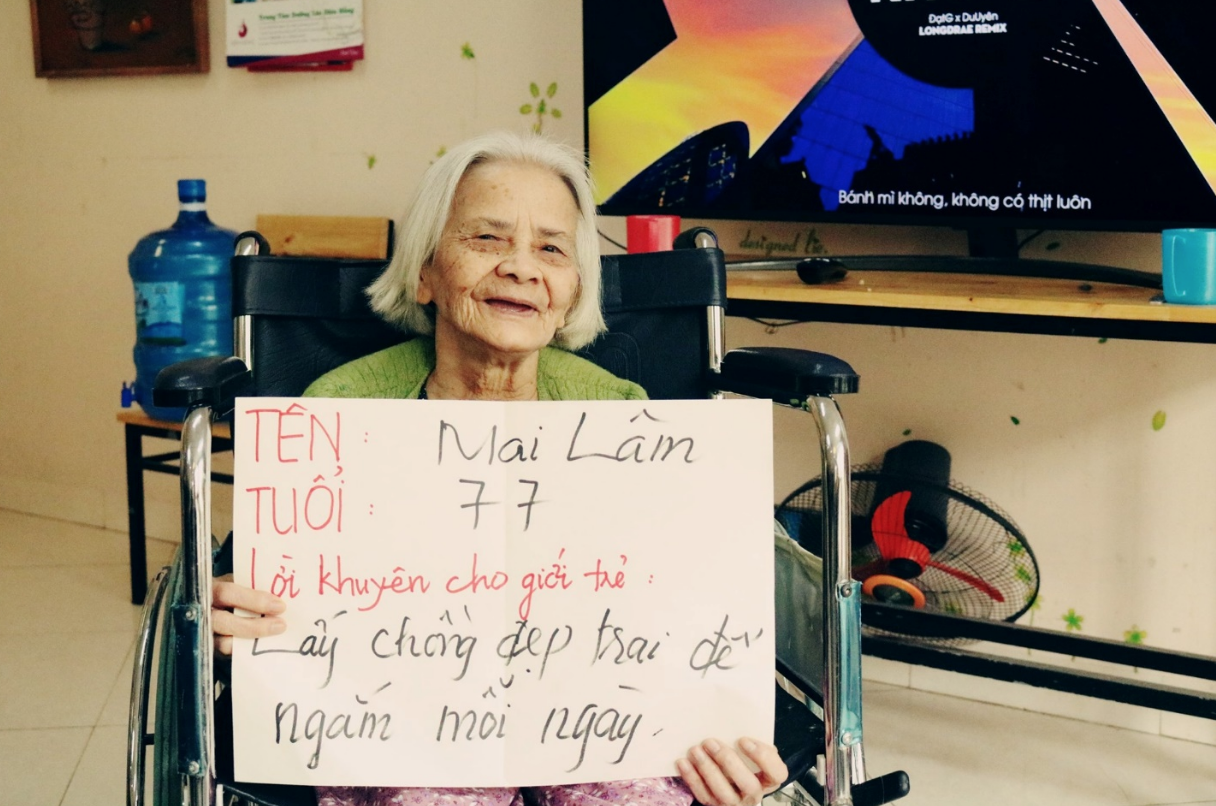 ĐạtG x DuUyên
LONGDRAE REMIX
Bánh mì không, không có thịt luôn
designed
TÊN : Mai Lâm
TUỔI : 77
Lời khuyên cho giới trẻ :
Lấy chồng đẹp trai để
ngắm mỗi ngày.